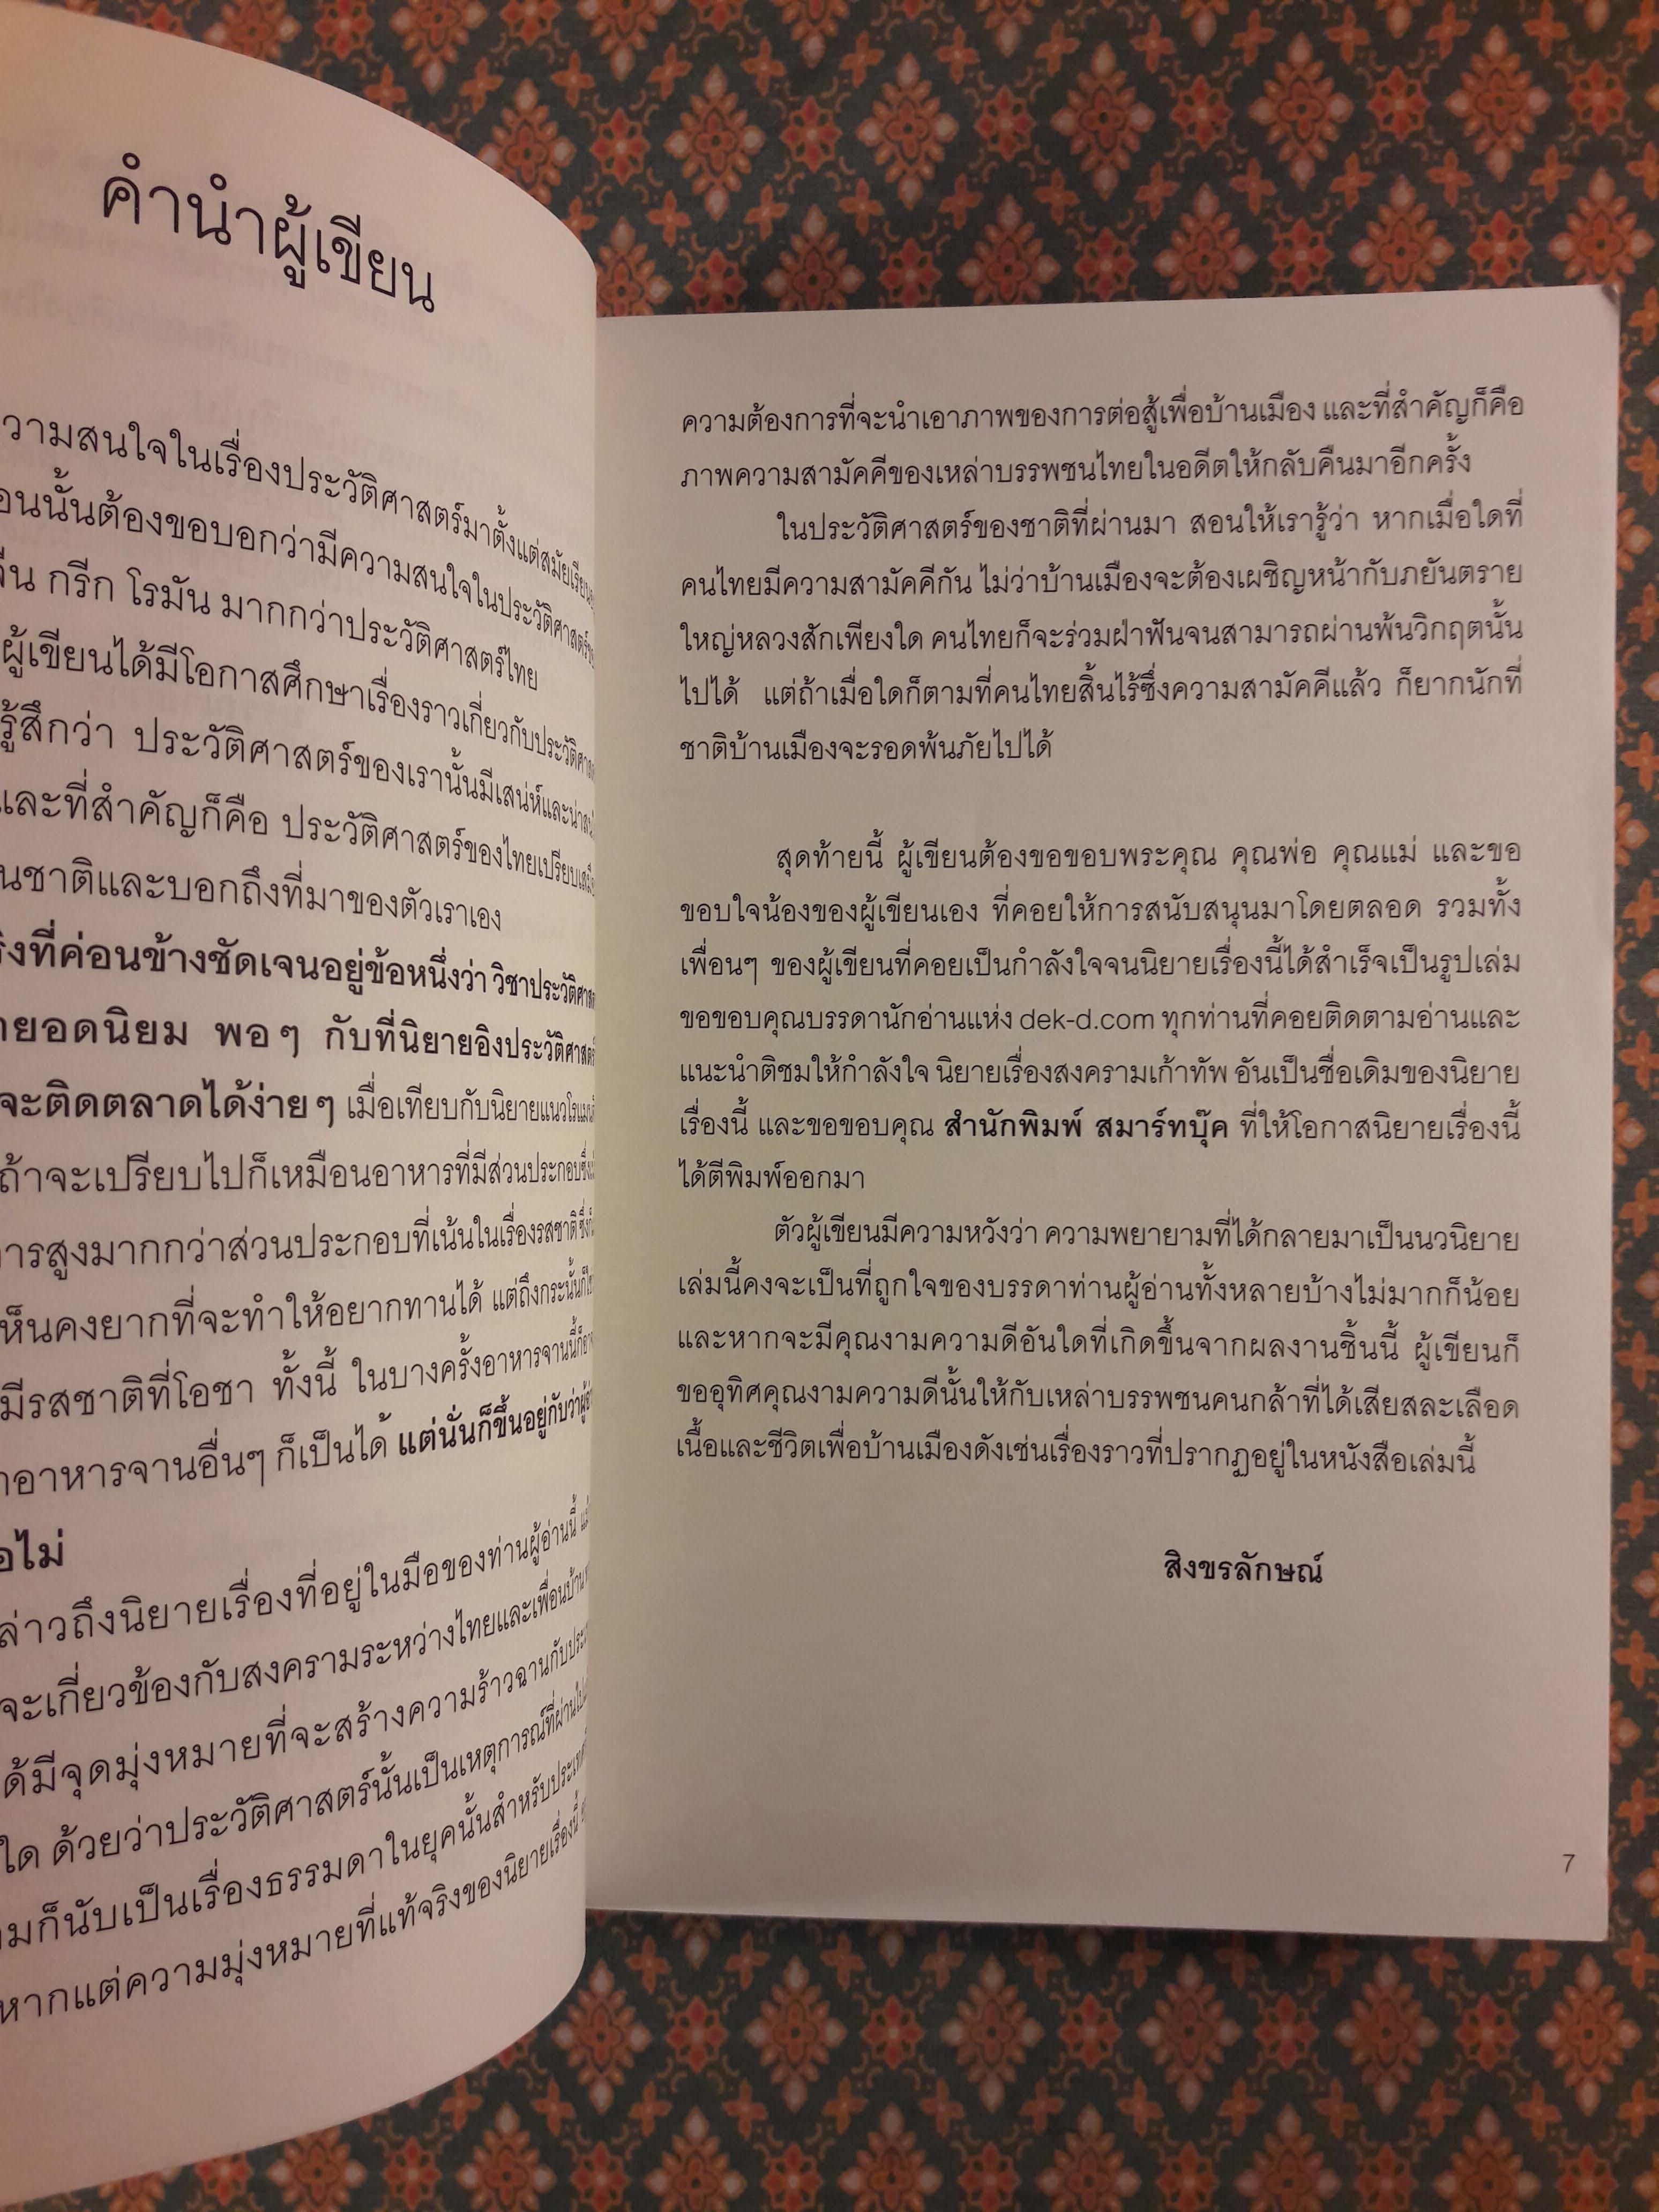 คำนำผู้เขียน
ความสนใจในเรื่องประวัติศาสตร์มาตั้งแต่สมัยเรียน
นั้นต้องขอบอกว่ามีความสนใจในประวัติศาสตร์
กรีก โรมัน มากกว่าประวัติศาสตร์ไทย
ผู้เขียนได้มีโอกาสศึกษาเรื่องราวเกี่ยวกับ
รู้สึกว่า ประวัติศาสตร์ของเรานั้นมีเสน่ห์และ
และที่สำคัญก็คือ ประวัติศาสตร์ของไทย
ชาติและบอกถึงที่มาของตัวเราเอง
ที่ค่อนข้างชัดเจนอยู่ข้อหนึ่งว่า
ยอดนิยม พอๆ กับที่นิยายอิงประวัติศาสตร์
จะติดตลาดได้ง่ายๆ เมื่อเทียบกับนิยายแนว
ถ้าจะเปรียบไปก็เหมือนอาหารที่มีส่วนประกอบ
สูงมากกว่าส่วนประกอบที่เน้นในเรื่องรสชาติ
เห็นคงยากที่จะทำให้อยากทานได้ แต่ถึงกระนั้นก็
มีรสชาติที่โอชา ทั้งนี้ ในบางครั้งอาหารจานนี้
อาหารจานอื่นๆ ก็เป็นได้ แต่นั่นก็ขึ้นอยู่กับว่า
ไม่
ถึงนิยายเรื่องที่อยู่ในมือของท่านผู้อ่านนี้
จะเกี่ยวข้องกับสงครามระหว่างไทยและเพื่อนบ้าน
มีจุดมุ่งหมายที่จะสร้างความร้าวฉานกับ
ใด ด้วยว่าประวัติศาสตร์นั้นเป็นเหตุการณ์ที่ผ่าน
ก็นับเป็นเรื่องธรรมดาในยุคนั้นสำหรับ
หากแต่ความมุ่งหมายที่แท้จริงของนิยายเรื่องนี้
ความต้องการที่จะนำเอาภาพของการต่อสู้เพื่อบ้านเมือง และที่สำคัญก็คือ
ภาพความสามัคคีของเหล่าบรรพชนไทยในอดีตให้กลับคืนมาอีกครั้ง
ในประวัติศาสตร์ของชาติที่ผ่านมา สอนให้เรารู้ว่า หากเมื่อใดที่
คนไทยมีความสามัคคีกัน ไม่ว่าบ้านเมืองจะต้องเผชิญหน้ากับภยันตราย
ใหญ่หลวงสักเพียงใด คนไทยก็จะร่วมฝ่าฟันจนสามารถผ่านพ้นวิกฤตนั้น
ไปได้ แต่ถ้าเมื่อใดก็ตามที่คนไทยสิ้นไร้ซึ่งความสามัคคีแล้ว ก็ยากนักที่
ชาติบ้านเมืองจะรอดพ้นภัยไปได้
สุดท้ายนี้ ผู้เขียนต้องขอขอบพระคุณ คุณพ่อ คุณแม่ และขอ
ขอบใจน้องของผู้เขียนเอง ที่คอยให้การสนับสนุนมาโดยตลอด รวมทั้ง
เพื่อนๆ ของผู้เขียนที่คอยเป็นกำลังใจจนนิยายเรื่องนี้ได้สำเร็จเป็นรูปเล่ม
ขอขอบคุณบรรดานักอ่านแห่ง dek-d.com ทุกท่านที่คอยติดตามอ่านและ
แนะนำติชมให้กำลังใจ นิยายเรื่องสงครามเก้าทัพ อันเป็นชื่อเดิมของนิยาย
เรื่องนี้ และขอขอบคุณ สำนักพิมพ์ สมาร์ทบุ๊ค ที่ให้โอกาสนิยายเรื่องนี้
ได้ตีพิมพ์ออกมา
ตัวผู้เขียนมีความหวังว่า ความพยายามที่ได้กลายมาเป็นนวนิยาย
เล่มนี้คงจะเป็นที่ถูกใจของบรรดาท่านผู้อ่านทั้งหลายบ้างไม่มากก็น้อย
และหากจะมีคุณงามความดีอันใดที่เกิดขึ้นจากผลงานชิ้นนี้ ผู้เขียนก็
ขออุทิศคุณงามความดีนั้นให้กับเหล่าบรรพชนคนกล้าที่ได้เสียสละเลือด
เนื้อและชีวิตเพื่อบ้านเมืองดังเช่นเรื่องราวที่ปรากฏอยู่ในหนังสือเล่มนี้
สิงขรลักษณ์
7